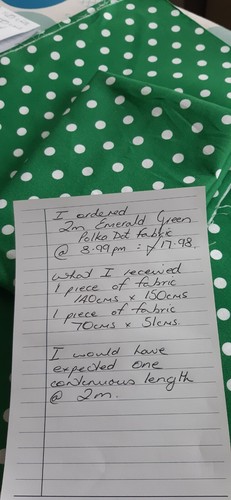 I ordered
2m Emerald Green
Polka Dot Fabric
@ 3.99pm = 7.98.
What I received
1 piece of fabric
140cms x 150cms
1 piece of fabric
70cms x 51cms.
I would have
expected one
continuous length
@ 2m.